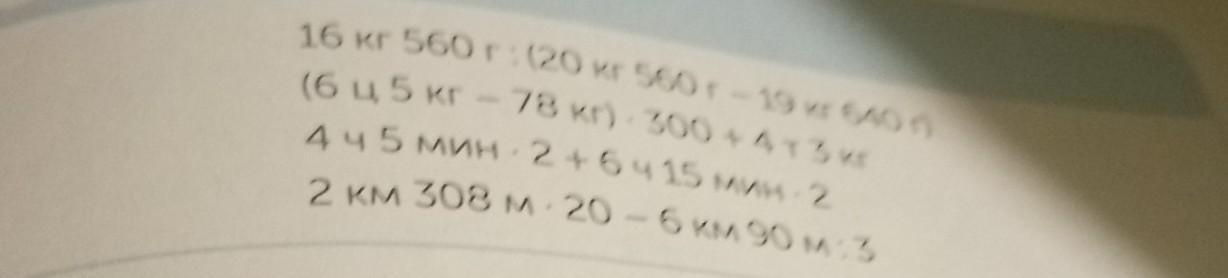 16 кг 560 г : (20 кг 560 г – 19 кг 640 г)
(6 ц 5 кг – 78 кг) · 300 + 4 т 3 кг
4 ч 5 мин · 2 + 6 ч 15 мин · 2
2 км 308 м · 20 – 6 км 90 м : 3